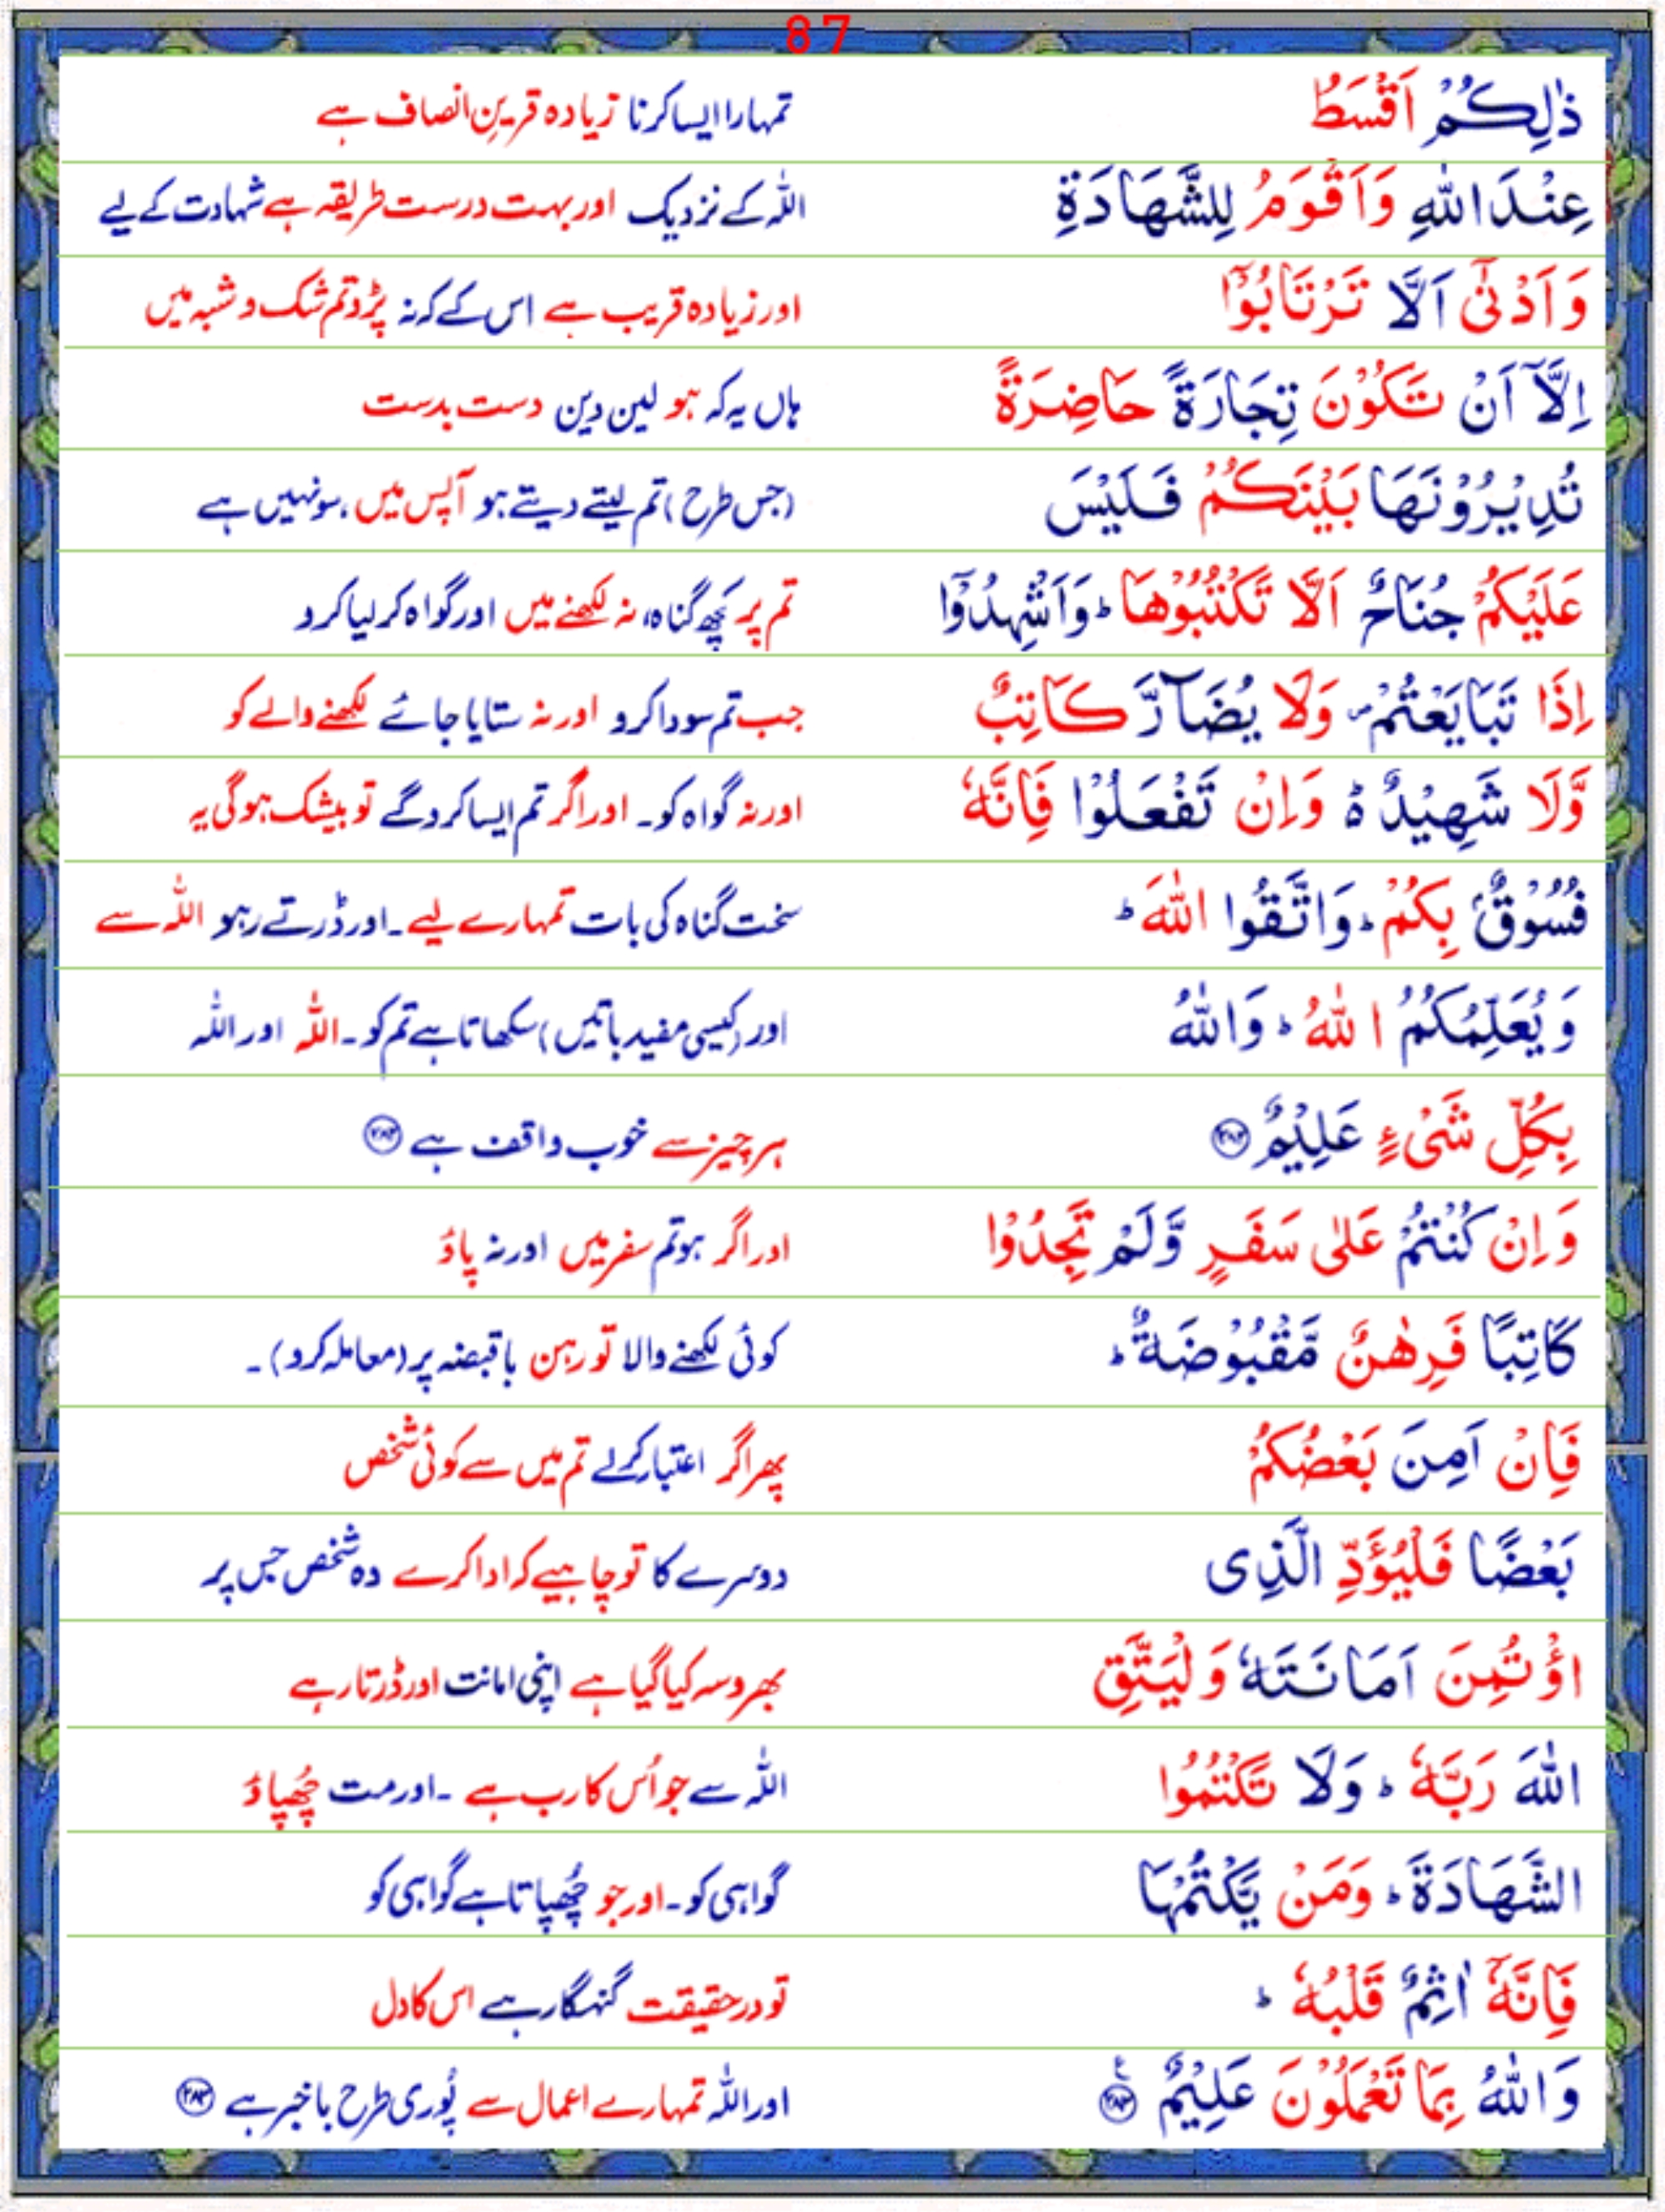 87
ذٰلِكُمْ اَقْسَطُ تمہارا ایسا کرنا زیادہ قرینِ انصاف ہے
عِنْدَ اللّٰهِ وَاَقْوَمُ لِلشَّهَادَةِ اللہ کے نزدیک اور بہت درست طریقہ ہے شہادت کے لیے
وَاَدْنٰۤى اَلَّا تَرْتَابُوْۤا اور زیادہ قریب ہے اس کے کہ نہ پڑو تم شک و شبہ میں
اِلَّاۤ اَنْ تَكُوْنَ تِجَارَةً حَاضِرَةً ہاں یہ کہ ہو لین دین دست بدست
تُدِيْرُوْنَهَا بَيْنَكُمْ فَلَيْسَ (جس طرح) تم لیتے دیتے ہو آپس میں، سو نہیں ہے
عَلَيْكُمْ جُنَاحٌ اَلَّا تَكْتُبُوْهَا ؕ وَاَشْهِدُوْۤا تم پر کچھ گناہ، نہ لکھنے میں اور گواہ کر لیا کرو
اِذَا تَبَايَعْتُمْ ۪ وَلَا يُضَآرَّ كَاتِبٌ جب تم سودا کرو اور نہ ستایا جائے لکھنے والے کو
وَّلَا شَهِيْدٌ ؕ۬ وَاِنْ تَفْعَلُوْا فَاِنَّهٗ اور نہ گواہ کو۔ اور اگر تم ایسا کرو گے تو بیشک ہوگی یہ
فُسُوْقٌۢ بِكُمْ ؕ وَاتَّقُوا اللّٰهَ ؕ سخت گناہ کی بات تمہارے لیے۔ اور ڈرتے رہو اللہ سے
وَيُعَلِّمُكُمُ اللّٰهُ ؕ وَاللّٰهُ اور (کیسی مفید باتیں) سکھاتا ہے تم کو۔ اللہ اور اللہ
بِكُلِّ شَىْءٍ عَلِيْمٌ ﴿۲۸۲﴾ ہر چیز سے خوب واقف ہے ﴿۲۸۲﴾
وَاِنْ كُنْتُمْ عَلٰى سَفَرٍ وَّلَمْ تَجِدُوْا اور اگر ہو تم سفر میں اور نہ پاؤ
كَاتِبًا فَرِهٰنٌ مَّقْبُوْضَةٌ ؕ کوئی لکھنے والا تو رہن با قبضہ پر (معاملہ کرو)۔
فَاِنْ اَمِنَ بَعْضُكُمْ پھر اگر اعتبار کرلے تم میں سے کوئی شخص
بَعْضًا فَلْيُؤَدِّ الَّذِى دوسرے کا تو چاہیے کہ ادا کرے وہ شخص جس پر
اؤْتُمِنَ اَمَانَتَهٗ وَلْيَتَّقِ بھروسہ کیا گیا ہے اپنی امانت اور ڈرتا رہے
اللّٰهَ رَبَّهٗ ؕ وَلَا تَكْتُمُوا اللہ سے جو اُس کا رب ہے ۔ اور مت چُھپاؤ
الشَّهَادَةَ ؕ وَمَنْ يَّكْتُمْهَا گواہی کو۔ اور جو چُھپاتا ہے گواہی کو
فَاِنَّهٗۤ اٰثِمٌ قَلْبُهٗ ؕ تو در حقیقت گنہگار ہے اس کا دل
وَاللّٰهُ بِمَا تَعْمَلُوْنَ عَلِيْمٌ ﴿۲۸۳﴾ ع اور اللہ تمہارے اعمال سے پُوری طرح با خبر ہے ﴿۲۸۳﴾